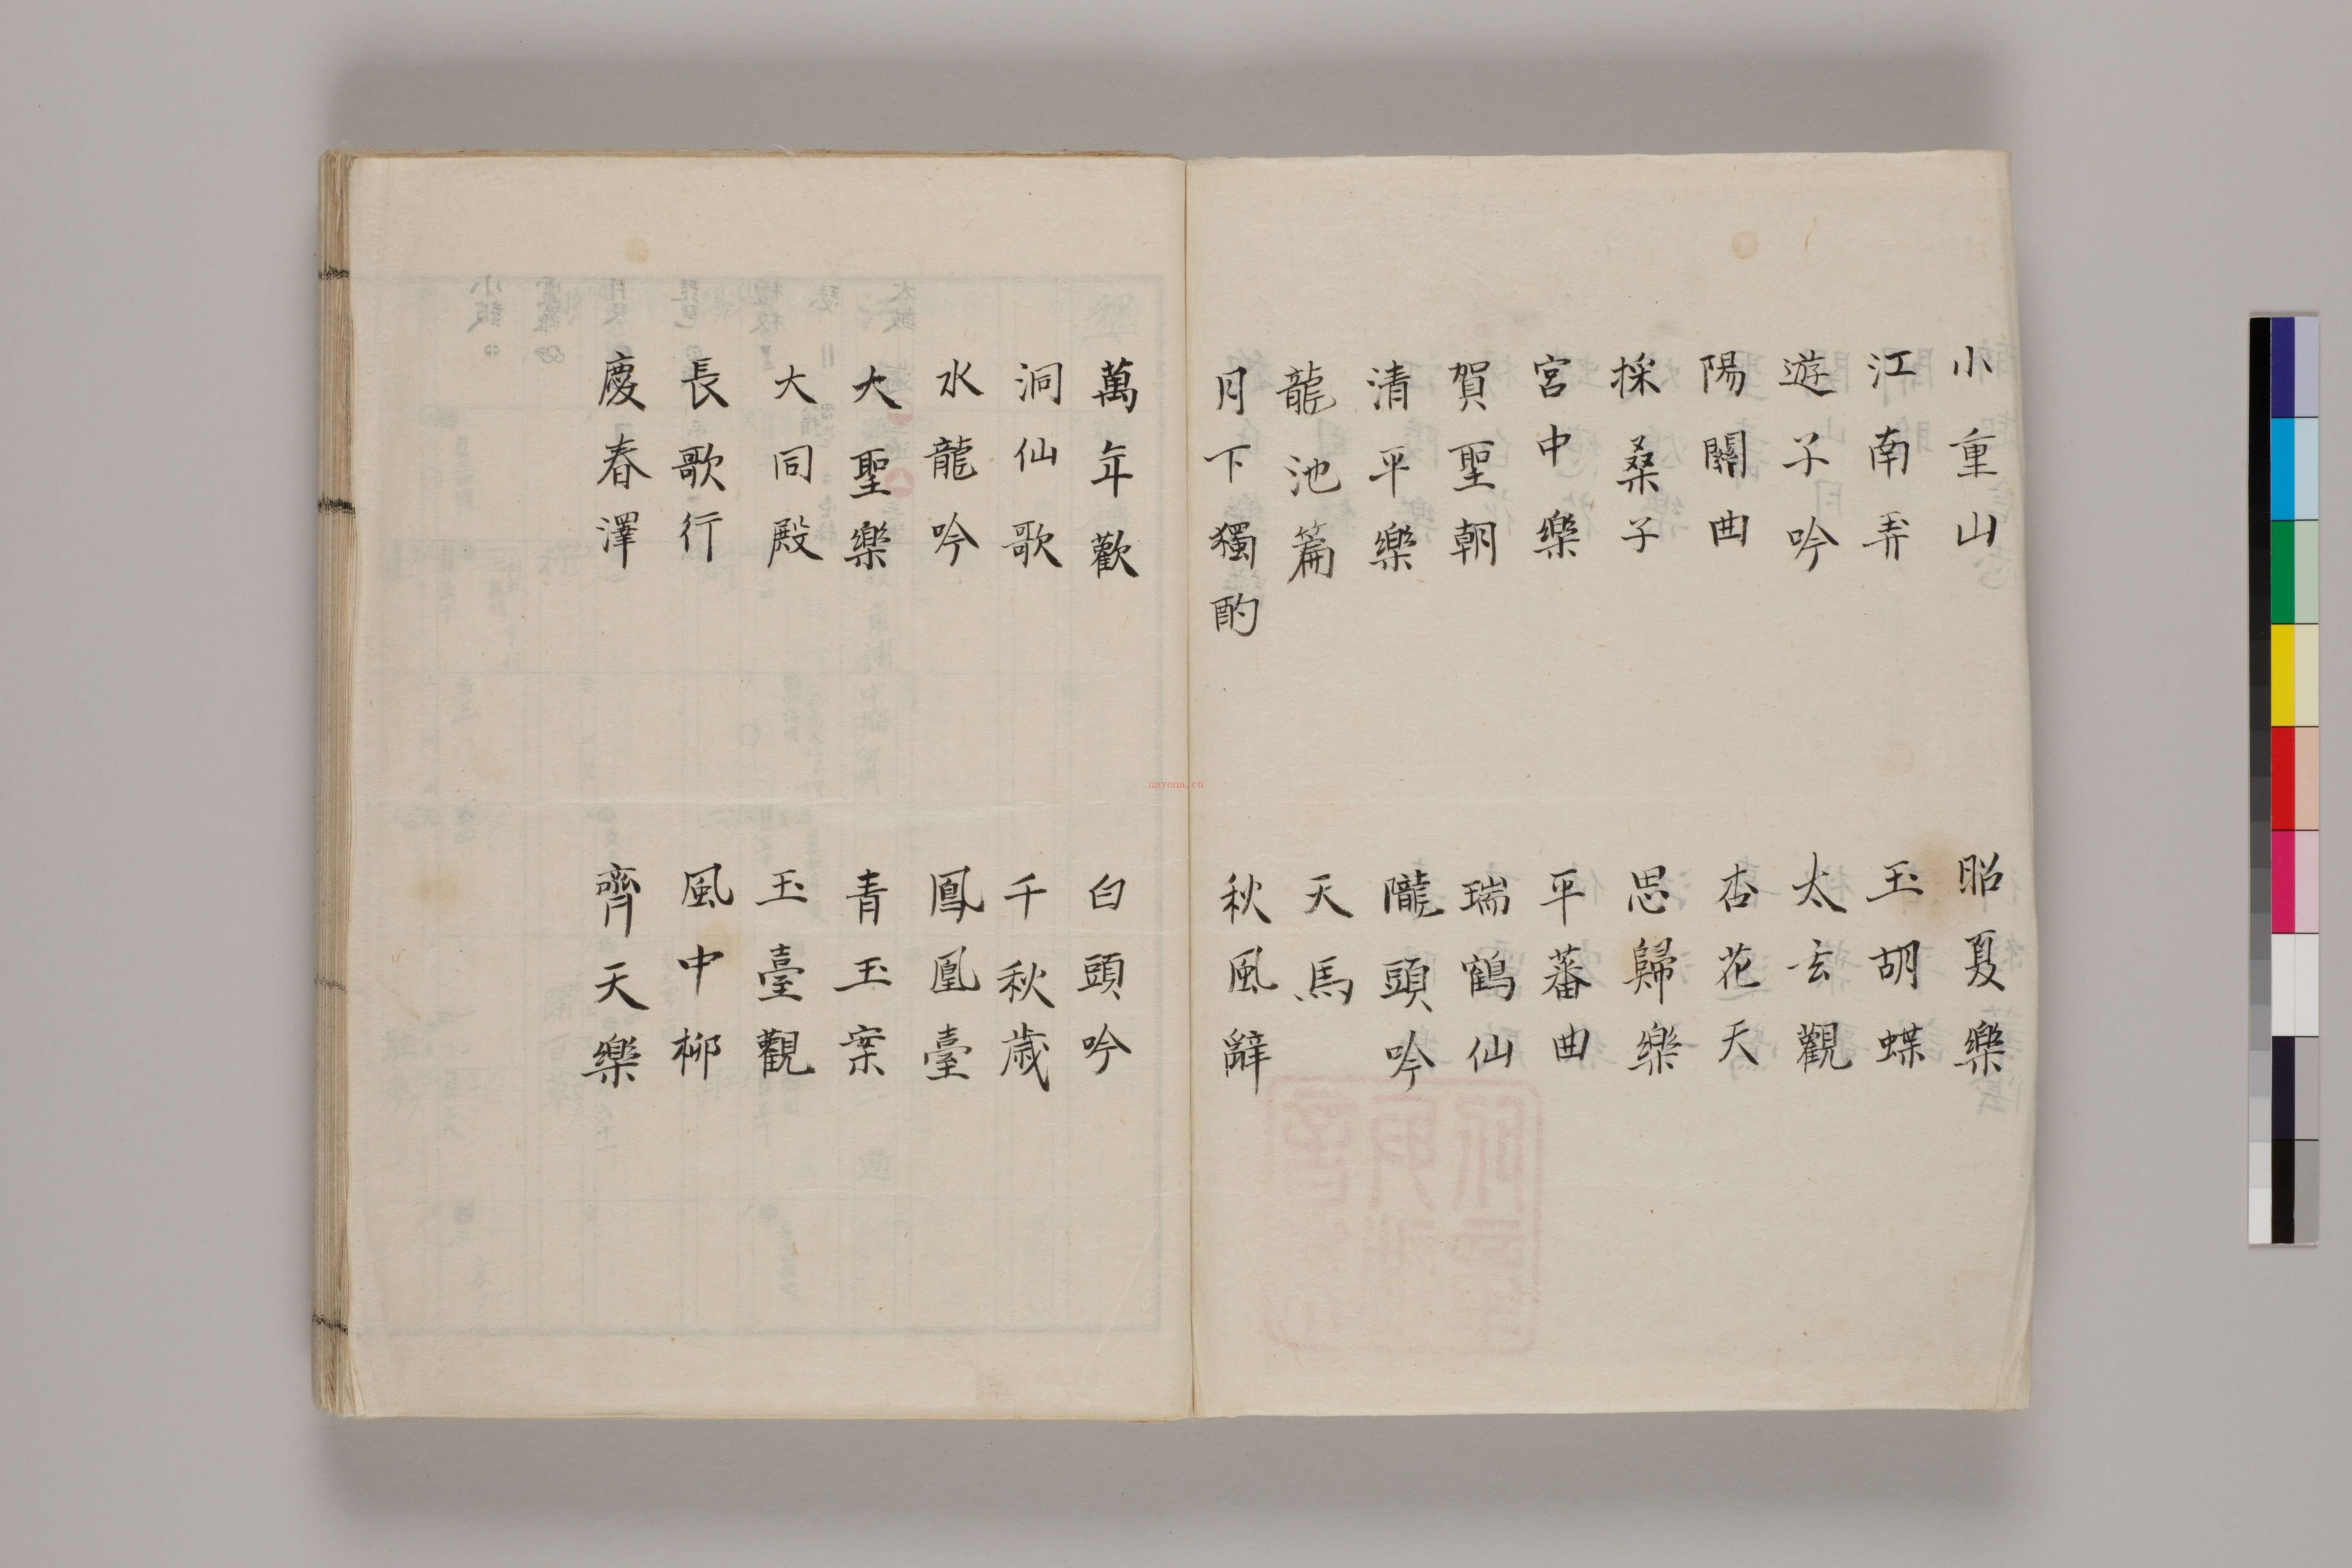 小重山
昭夏樂
江南弄
玉胡蝶
遊子吟
太玄觀
陽關曲
杏花天
採桑子
思歸樂
宮中樂
平蕃曲
賀聖朝
瑞鶴仙
清平樂
隴頭吟
龍池篇
天馬
月下獨酌
秋風辭
萬年歡
白頭吟
洞仙歌
千秋歲
水龍吟
鳳凰臺
大聖樂
青玉案
大同殿
玉臺觀
長歌行
風中柳
慶春澤
齊天樂
nayona.cn